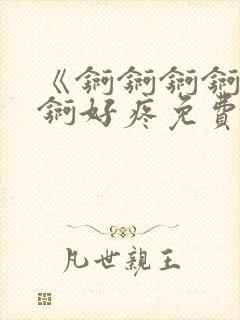 《錒錒錒錒
錒好疼免費
凡世親王